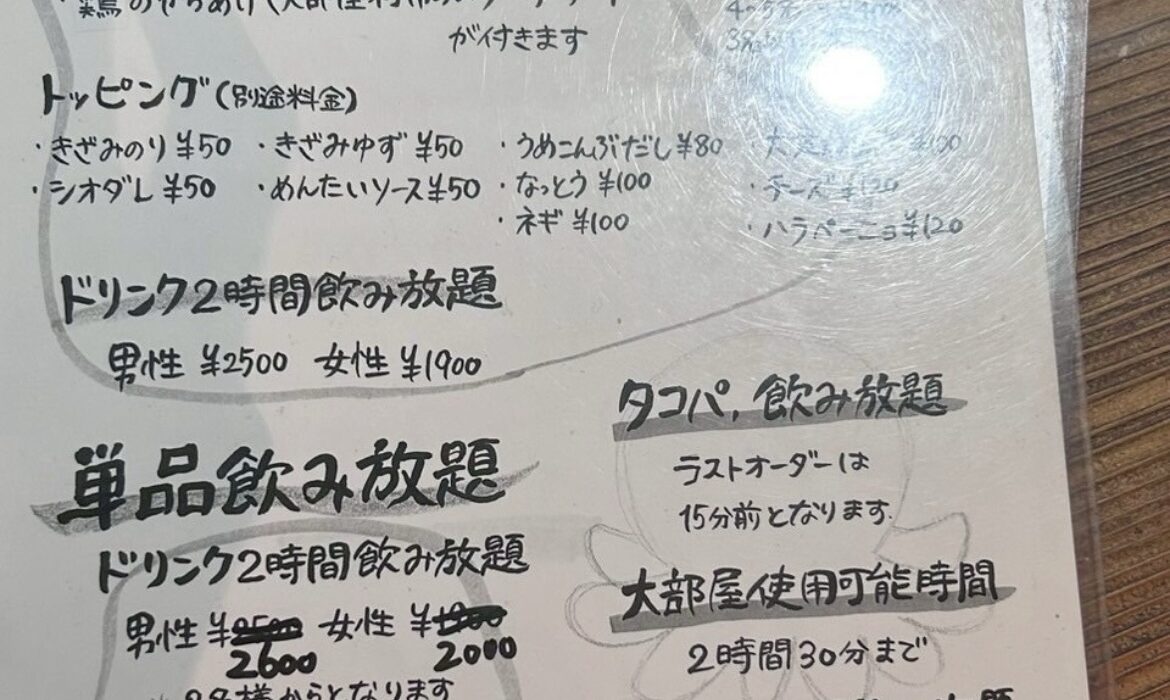 が付きます
トッピング(別途料金)
・きざみのり ¥50 ・きざみゆず ¥50 ・うめこんぶだし ¥80
・シオダレ ¥50 ・めんたいソース ¥50 ・なっとう ¥100 ・チーズ ¥120
・ネギ ¥100 ・ハラペーニョ ¥120
ドリンク2時間飲み放題
男性 ¥2500 女性 ¥1900
単品飲み放題
ドリンク2時間飲み放題
男性 ¥2600 女性 ¥2000
2名様からとなります
タコパ,飲み放題
ラストオーダーは
15分前となります.
大部屋使用可能時間
2時間30分まで